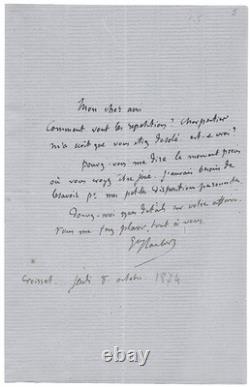 Mon cher ami
Comment vont les répétitions? Charpentier
m'a écrit que vous étiez désolé est-ce vrai?
Pouvez-vous me dire le moment précis
où vous croyez être joué. J'aurais besoin de
le savoir pr ma petite disposition personnelle.
Donnez-moi qques détails sur votre affaire.
Vous me ferez plaisir, tout à vous
Gve Flaubert
Croisset Jeudi 8 octobre 1874